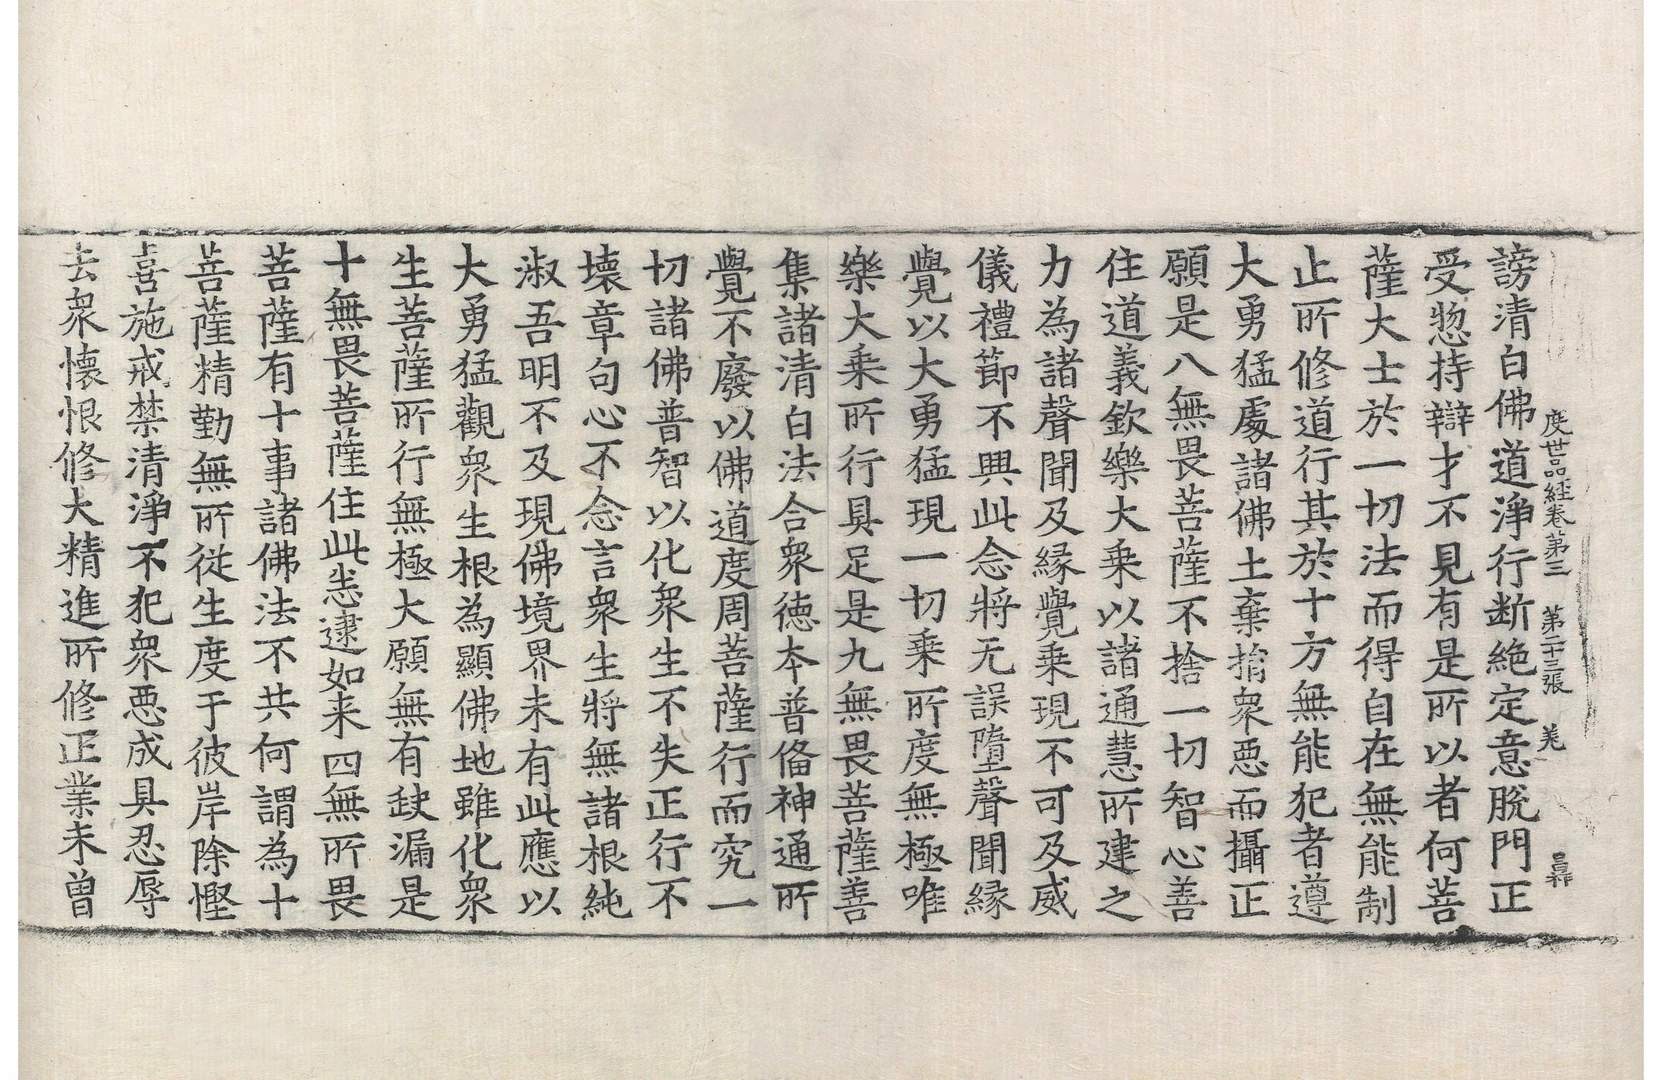 度世品経卷第三　第二十三張　羌
謗清白佛道淨行断絶定意脫門正
受惣持辯才不見有是所以者何菩
薩大士於一切法而得自在無能制
止所修道行其於十方無能犯者遵
大勇猛處諸佛土棄捐衆惡而攝正
願是八無畏菩薩不捨一切智心善
住道義欽樂大乗以諸通慧所建之
力為諸聲聞及縁覺乗現不可及威
儀禮節不興此念將无誤墮聲聞縁
覺以大勇猛現一切乗所度無極唯
樂大乗所行具足是九無畏菩薩善
集諸清白法合衆徳夲普俻神通所
覺不廢以佛道度周菩薩行而究一
切諸佛普智以化衆生不失正行不
壊章句心不念言衆生將無諸根純
淑吾明不及現佛境界未有此應以
大勇猛觀衆生根為顯佛地雖化衆
生菩薩所行無極大願無有缺漏是
十無畏菩薩住此悉逮如来四無所畏
菩薩有十事諸佛法不共何謂為十
菩薩精勤無所從生度于彼岸除慳
喜施戒禁清淨不犯衆惡成具忍辱
去衆懐恨修大精進所修正業未曽